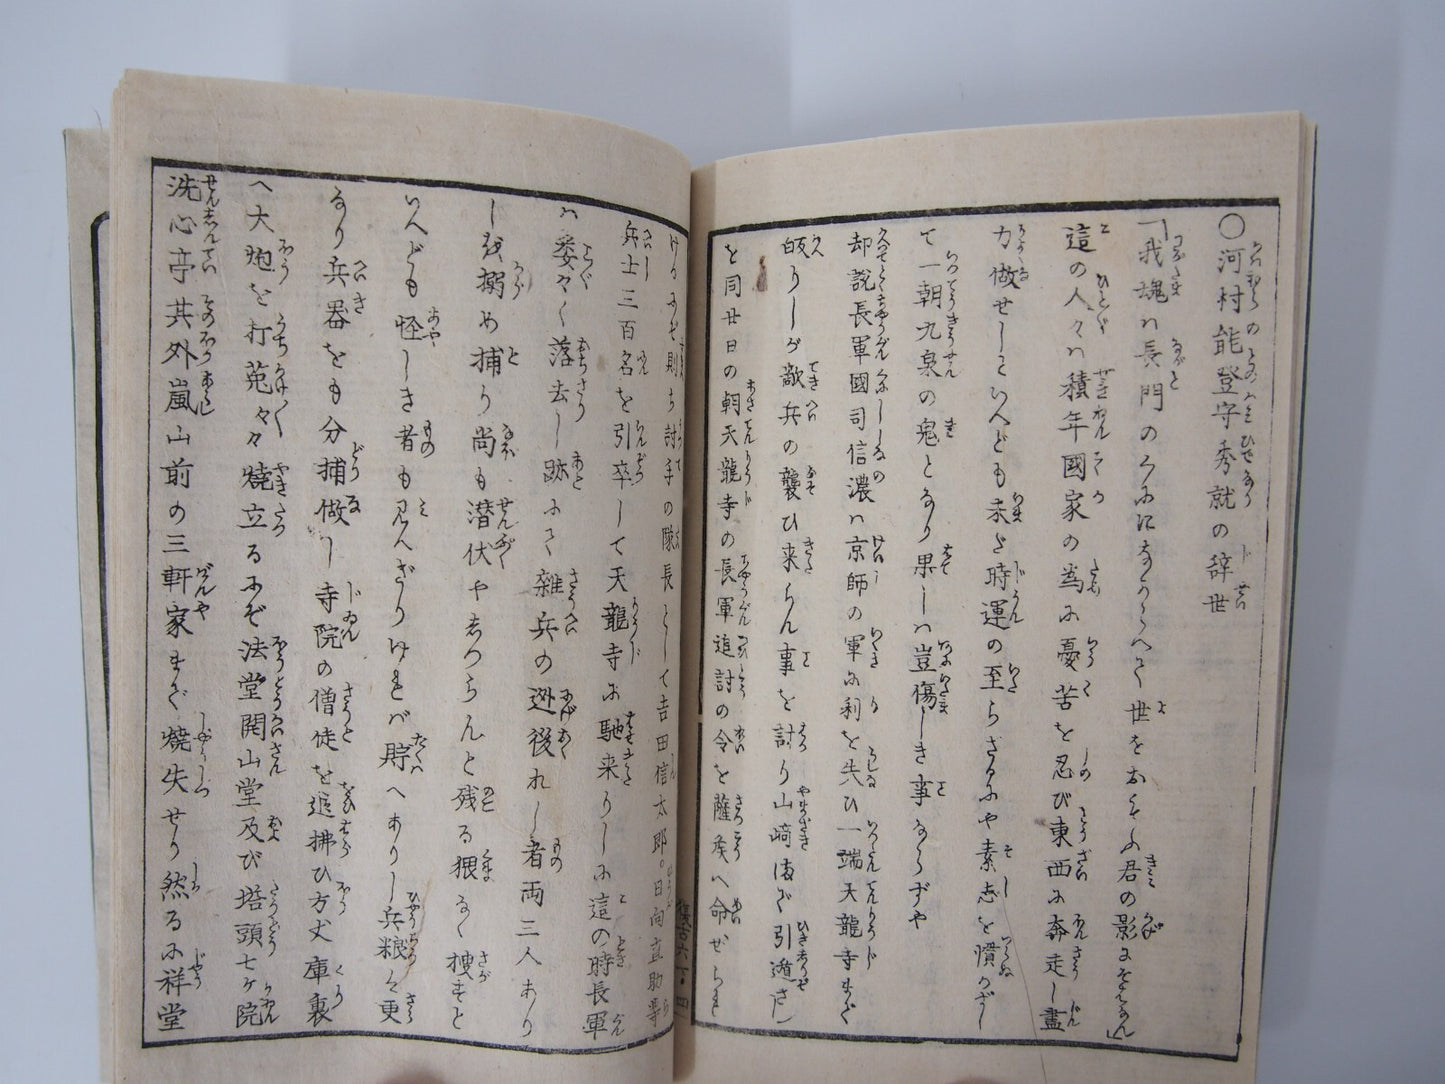 ○河村能登守秀就の辞世
「我魂ハ長門の
世を
君の影
這の人々ハ積年國家の為に憂苦を忍び東西に奔走し盡
力做せしといへども未だ時運の至らざるにや素志を憤
て一朝九泉の鬼となり果しハ豈傷しき事ならずや
却説長軍國司信濃ハ京師の軍に利を失ひ一端天龍寺まで
皈りしが敵兵の襲ひ来らん事を討り山﨑まで引退きし
を同廿日の朝天龍寺の長軍追討の令を薩矦へ命ぜられ
けるにぞ則ち討手の隊長として吉田信太郎。日向直助等
兵士三百名を引卒して天龍寺に馳来りしに這の時長軍
ハ委々く落去し跡にて雑兵の迯後れし者両三人あり
しを搦め捕り尚も潜伏やしつらんと残る隈なく捜すと
いへども怪しき者も見へざりけれバ貯へありし兵粮と更
なり兵器をも分捕做し寺院の僧徒を追拂ひ方丈庫裏
へ大炮を打荒々々燒立るにぞ法堂開山堂及び塔頭七ヶ院
洗心亭其外嵐山前の三軒家まで燒失せり然るに祥堂